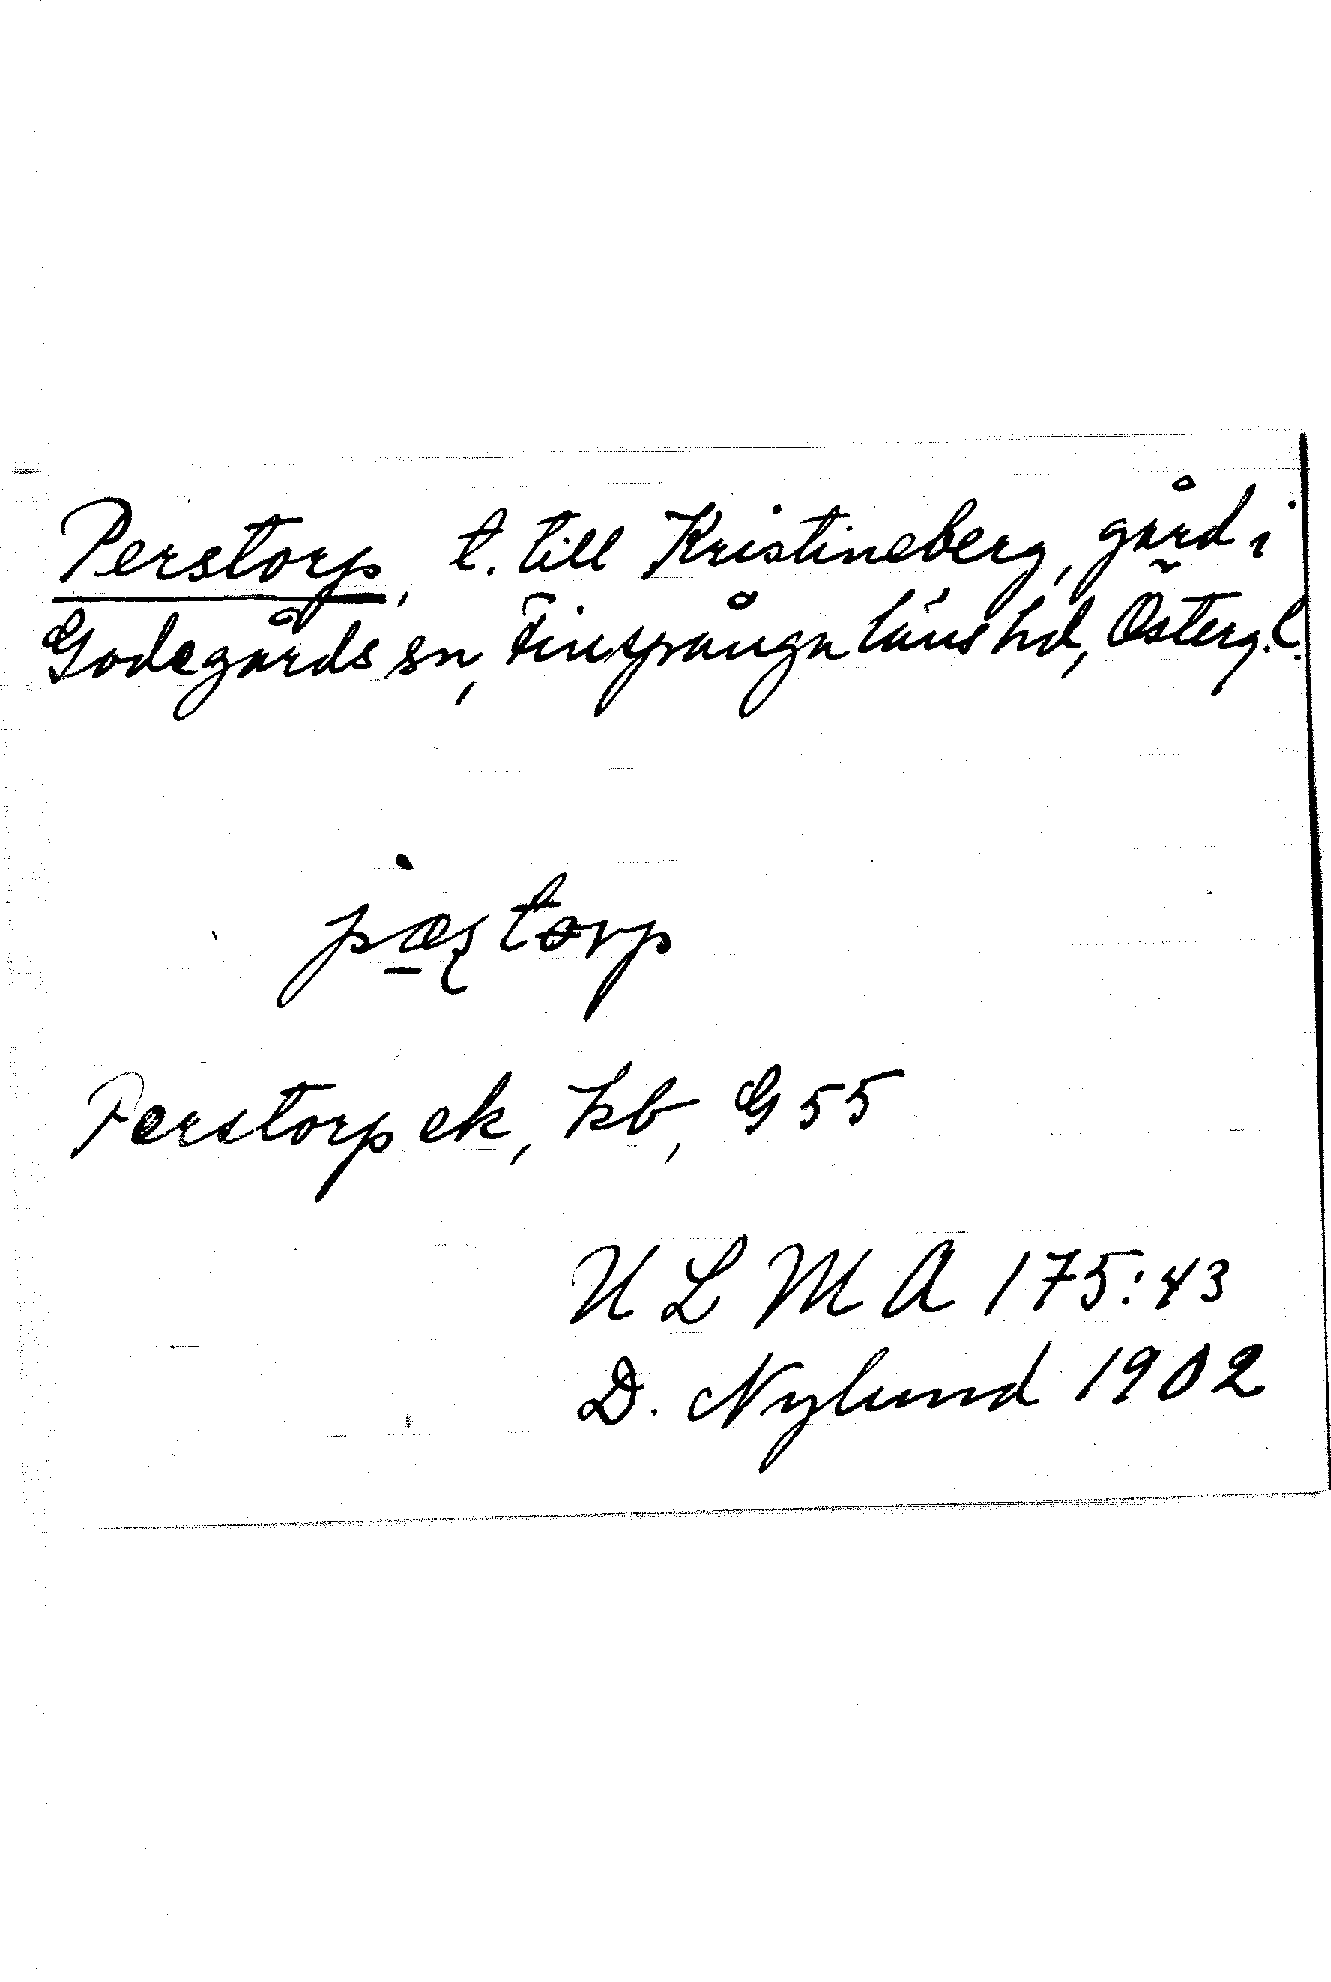 Perstorp, t. till Kristineberg, gård i
Godegårds sn, Finspånga läns hd, Österg.l.
pæʂtorp
Perstorp ek, kb, G 55
ULMA 175:43
D. Nylund 1902